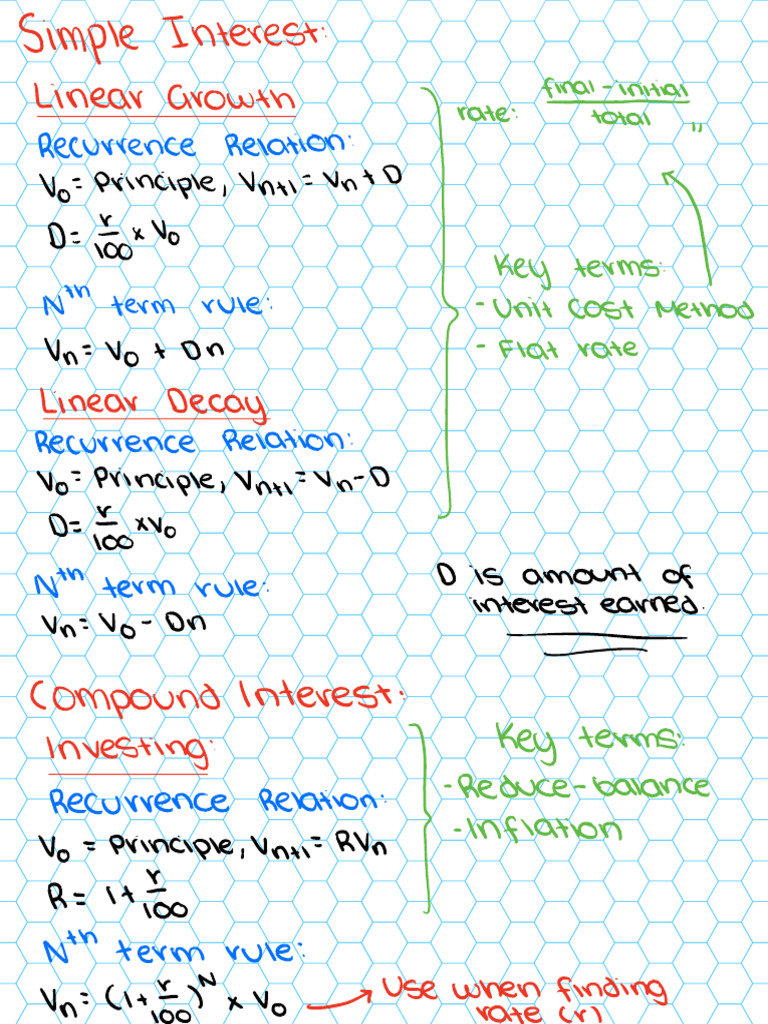 Simple Interest:
Linear Growth
Recurrence Relation:
V₀ = Principle, Vₙ₊₁ = Vₙ + D
D = r/100 × V₀
Nᵗʰ term rule:
Vₙ = V₀ + Dn
rate: final - initial / total "
Key terms:
- Unit cost Method
- Flat rate
Linear Decay
Recurrence Relation:
V₀ = Principle, Vₙ₊₁ = Vₙ - D
D = r/100 × V₀
Nᵗʰ term rule:
Vₙ = V₀ - Dn
D is amount of
interest earned.
Compound Interest:
Investing:
Recurrence Relation:
V₀ = Principle, Vₙ₊₁ = RVₙ
R = 1 + r/100
Key terms:
- Reduce-balance
- Inflation
Nᵗʰ term rule:
Vₙ = (1 + r/100)ᴺ × V₀ → Use when finding
rate (r)